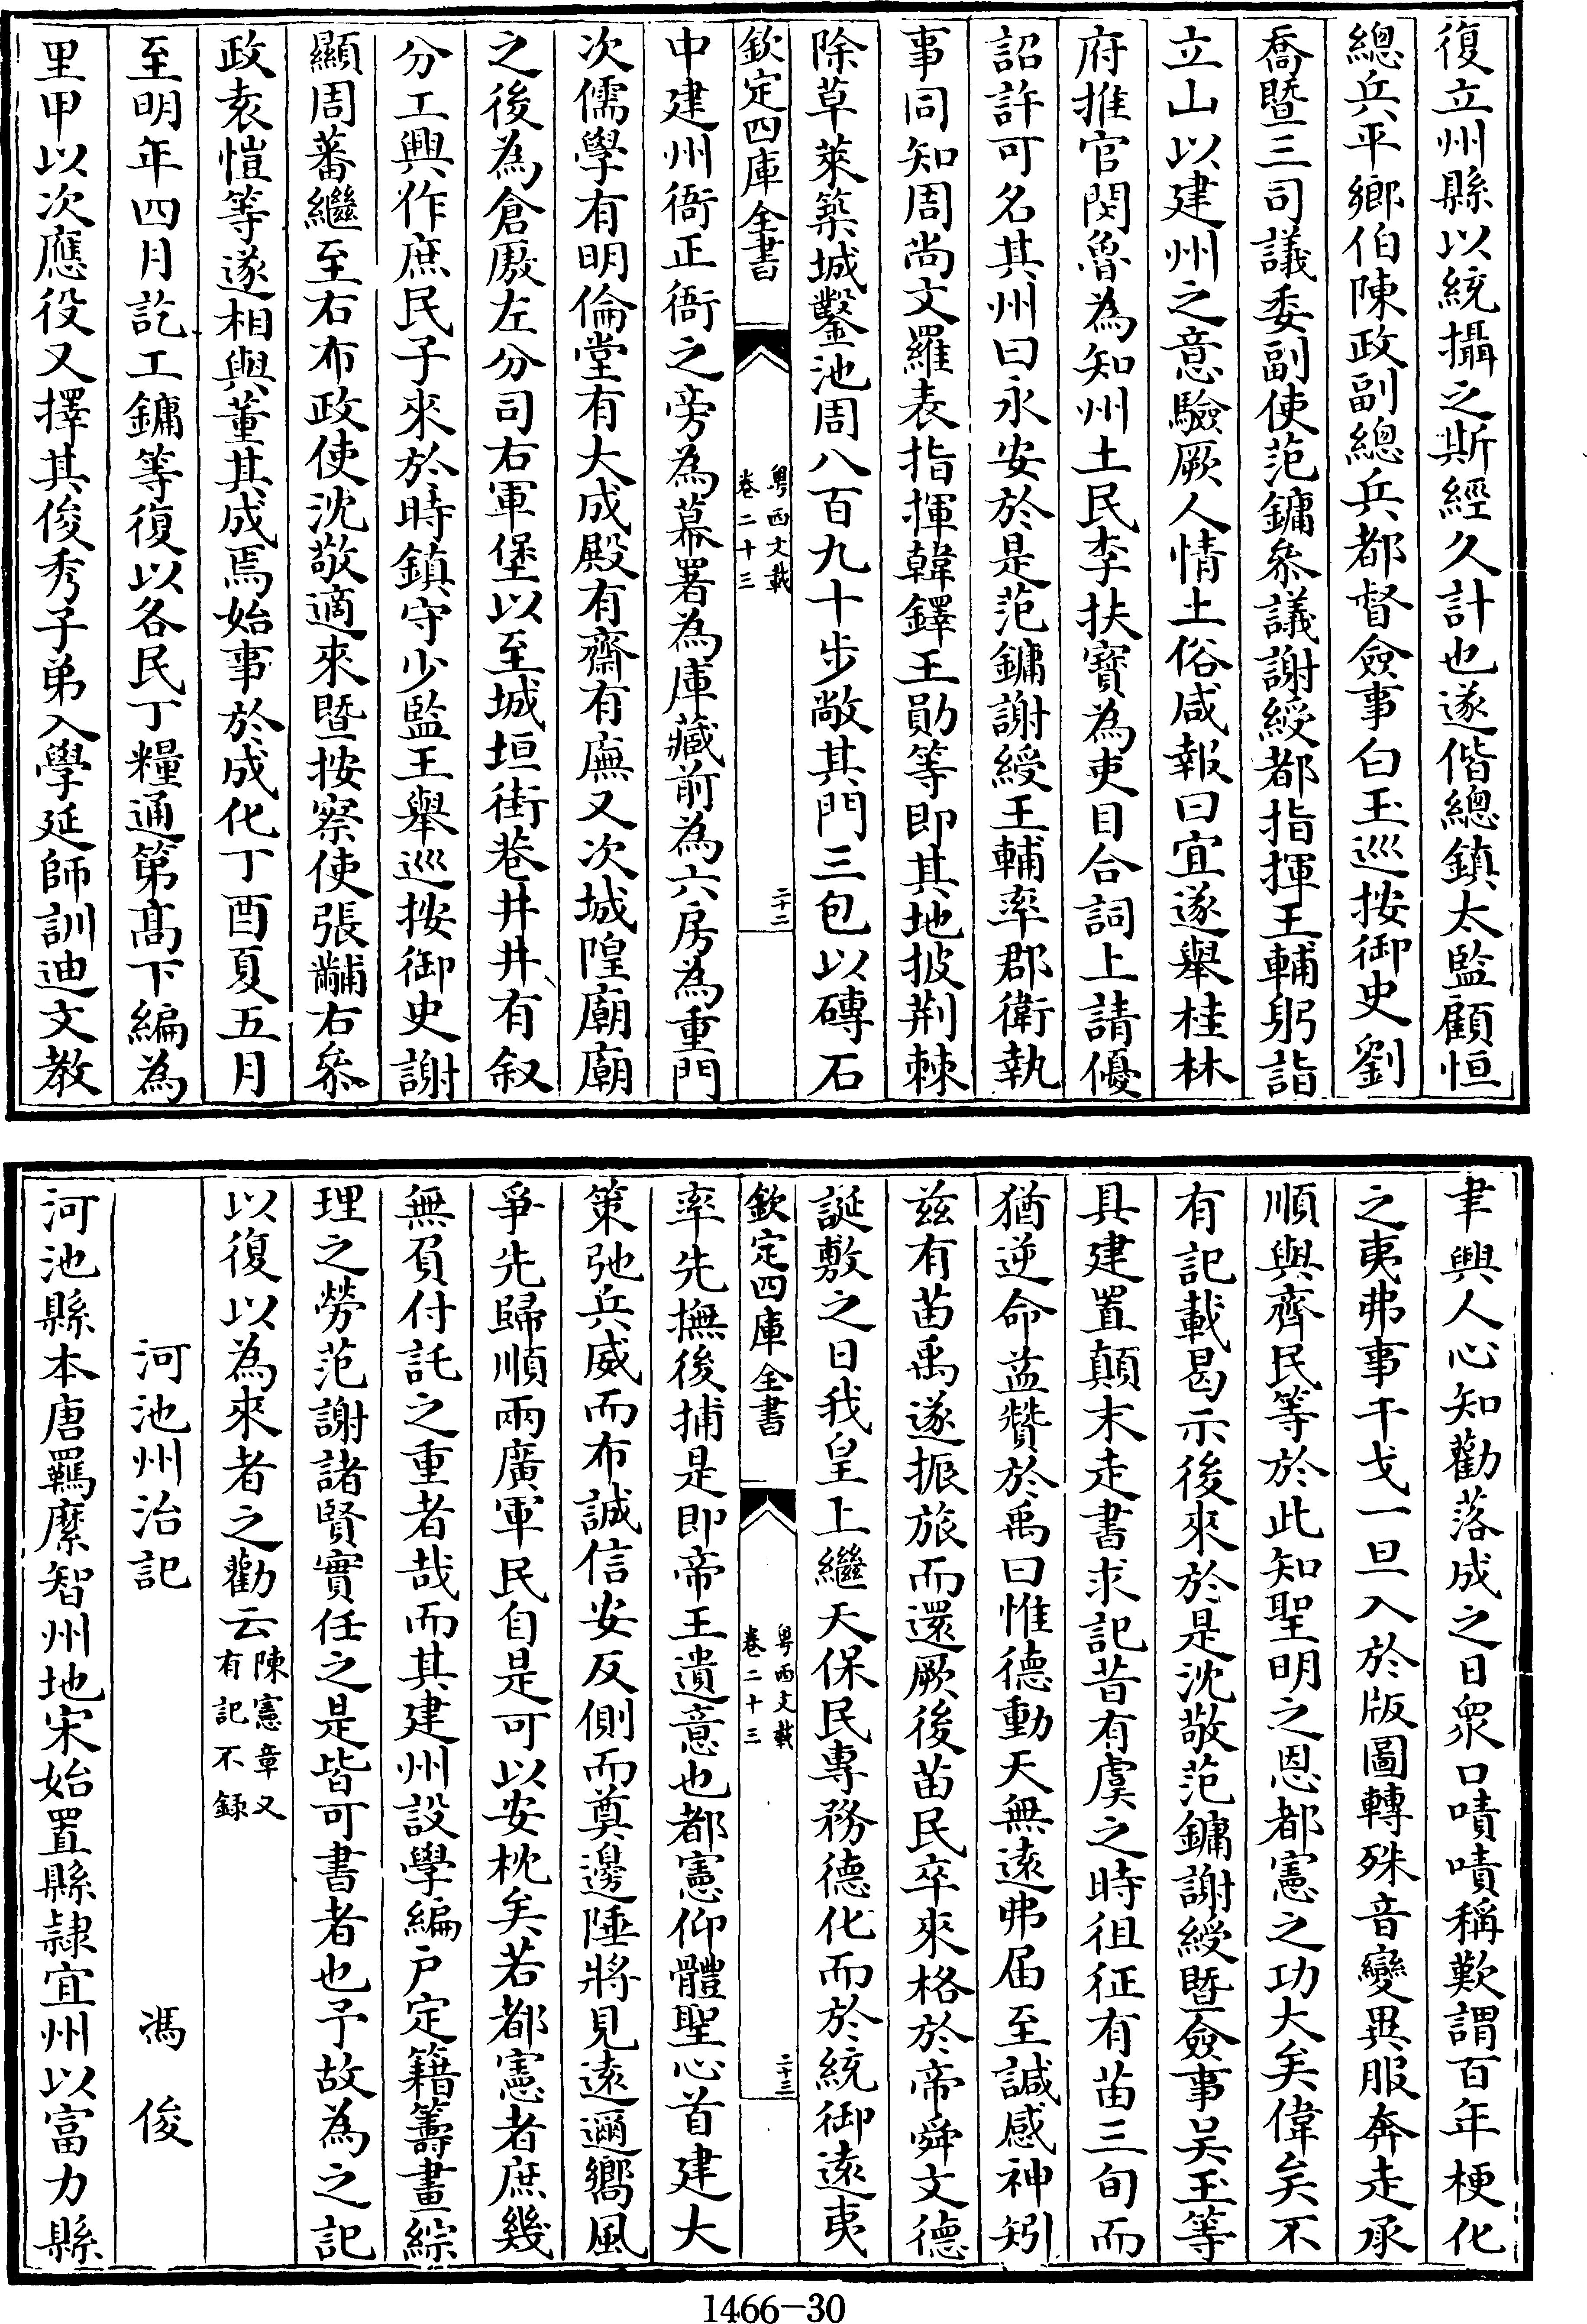 復立州縣以統攝之斯經久計也遂偕總鎮太監顧恒
總兵平鄉伯陳政副總兵都督僉事白玉巡按御史劉
喬暨三司議委副使范鏞叅議謝綬都指揮王輔躬詣
立山以建州之意驗厥人情土俗咸報曰宜遂舉桂林
府推官閔魯為知州土民李扶寳為吏目合詞上請優
詔許可名其州曰永安於是范鏞謝綬王輔率郡衛執
事同知周尚文羅表指揮韓鐸王勛等即其地披荆棘
除草萊築城鑿池周八百九十步敞其門三包以磚石
欽定四庫全書
粤西文載
卷二十三
二十二
中建州衙正衙之旁為幕署為庫藏前為六房為重門
次儒學有明倫堂有大成殿有齋有廡又次城隍廟廟
之後為倉厫左分司右軍堡以至城垣街巷井井有叙
分工興作庶民子來於時鎮守少監王舉巡按御史謝
顯周蕃繼至右布政使沈敬適來暨按察使張黼右叅
政袁愷等遂相與董其成焉始事於成化丁酉夏五月
至明年四月訖工鏞等復以各民丁糧通第髙下編為
里甲以次應役又擇其俊秀子弟入學延師訓迪文教
聿興人心知勸落成之日衆口嘖嘖稱歎謂百年梗化
之夷弗事干戈一旦入於版圖轉殊音變異服奔走承
順與齊民等於此知聖明之恩都憲之功大矣偉矣不
有記載曷示後來於是沈敬范鏞謝綬暨僉事吴玉等
具建置顛末走書求記昔有虞之時徂征有苗三旬而
猶逆命益贊於禹曰惟德動天無逺弗届至諴感神矧
兹有苗禹遂振旅而還厥後苗民卒來格於帝舜文德
誕敷之日我皇上繼天保民專務德化而於統御逺夷
欽定四庫全書
粤西文載
卷二十三
二十三
率先撫後捕是即帝王遺意也都憲仰體聖心首建大
策弛兵威而布誠信安反側而奠邊陲將見逺邇嚮風
爭先歸順兩廣軍民自是可以安枕矣若都憲者庶幾
無負付託之重者哉而其建州設學編户定籍籌畫綜
理之勞范謝諸賢實任之是皆可書者也予故為之記
以復以為來者之勸云
陳憲章又
有記不録
河池州治記
馮俊
河池縣本唐羈縻智州地宋始置縣隷宜州以富力縣
1466-30